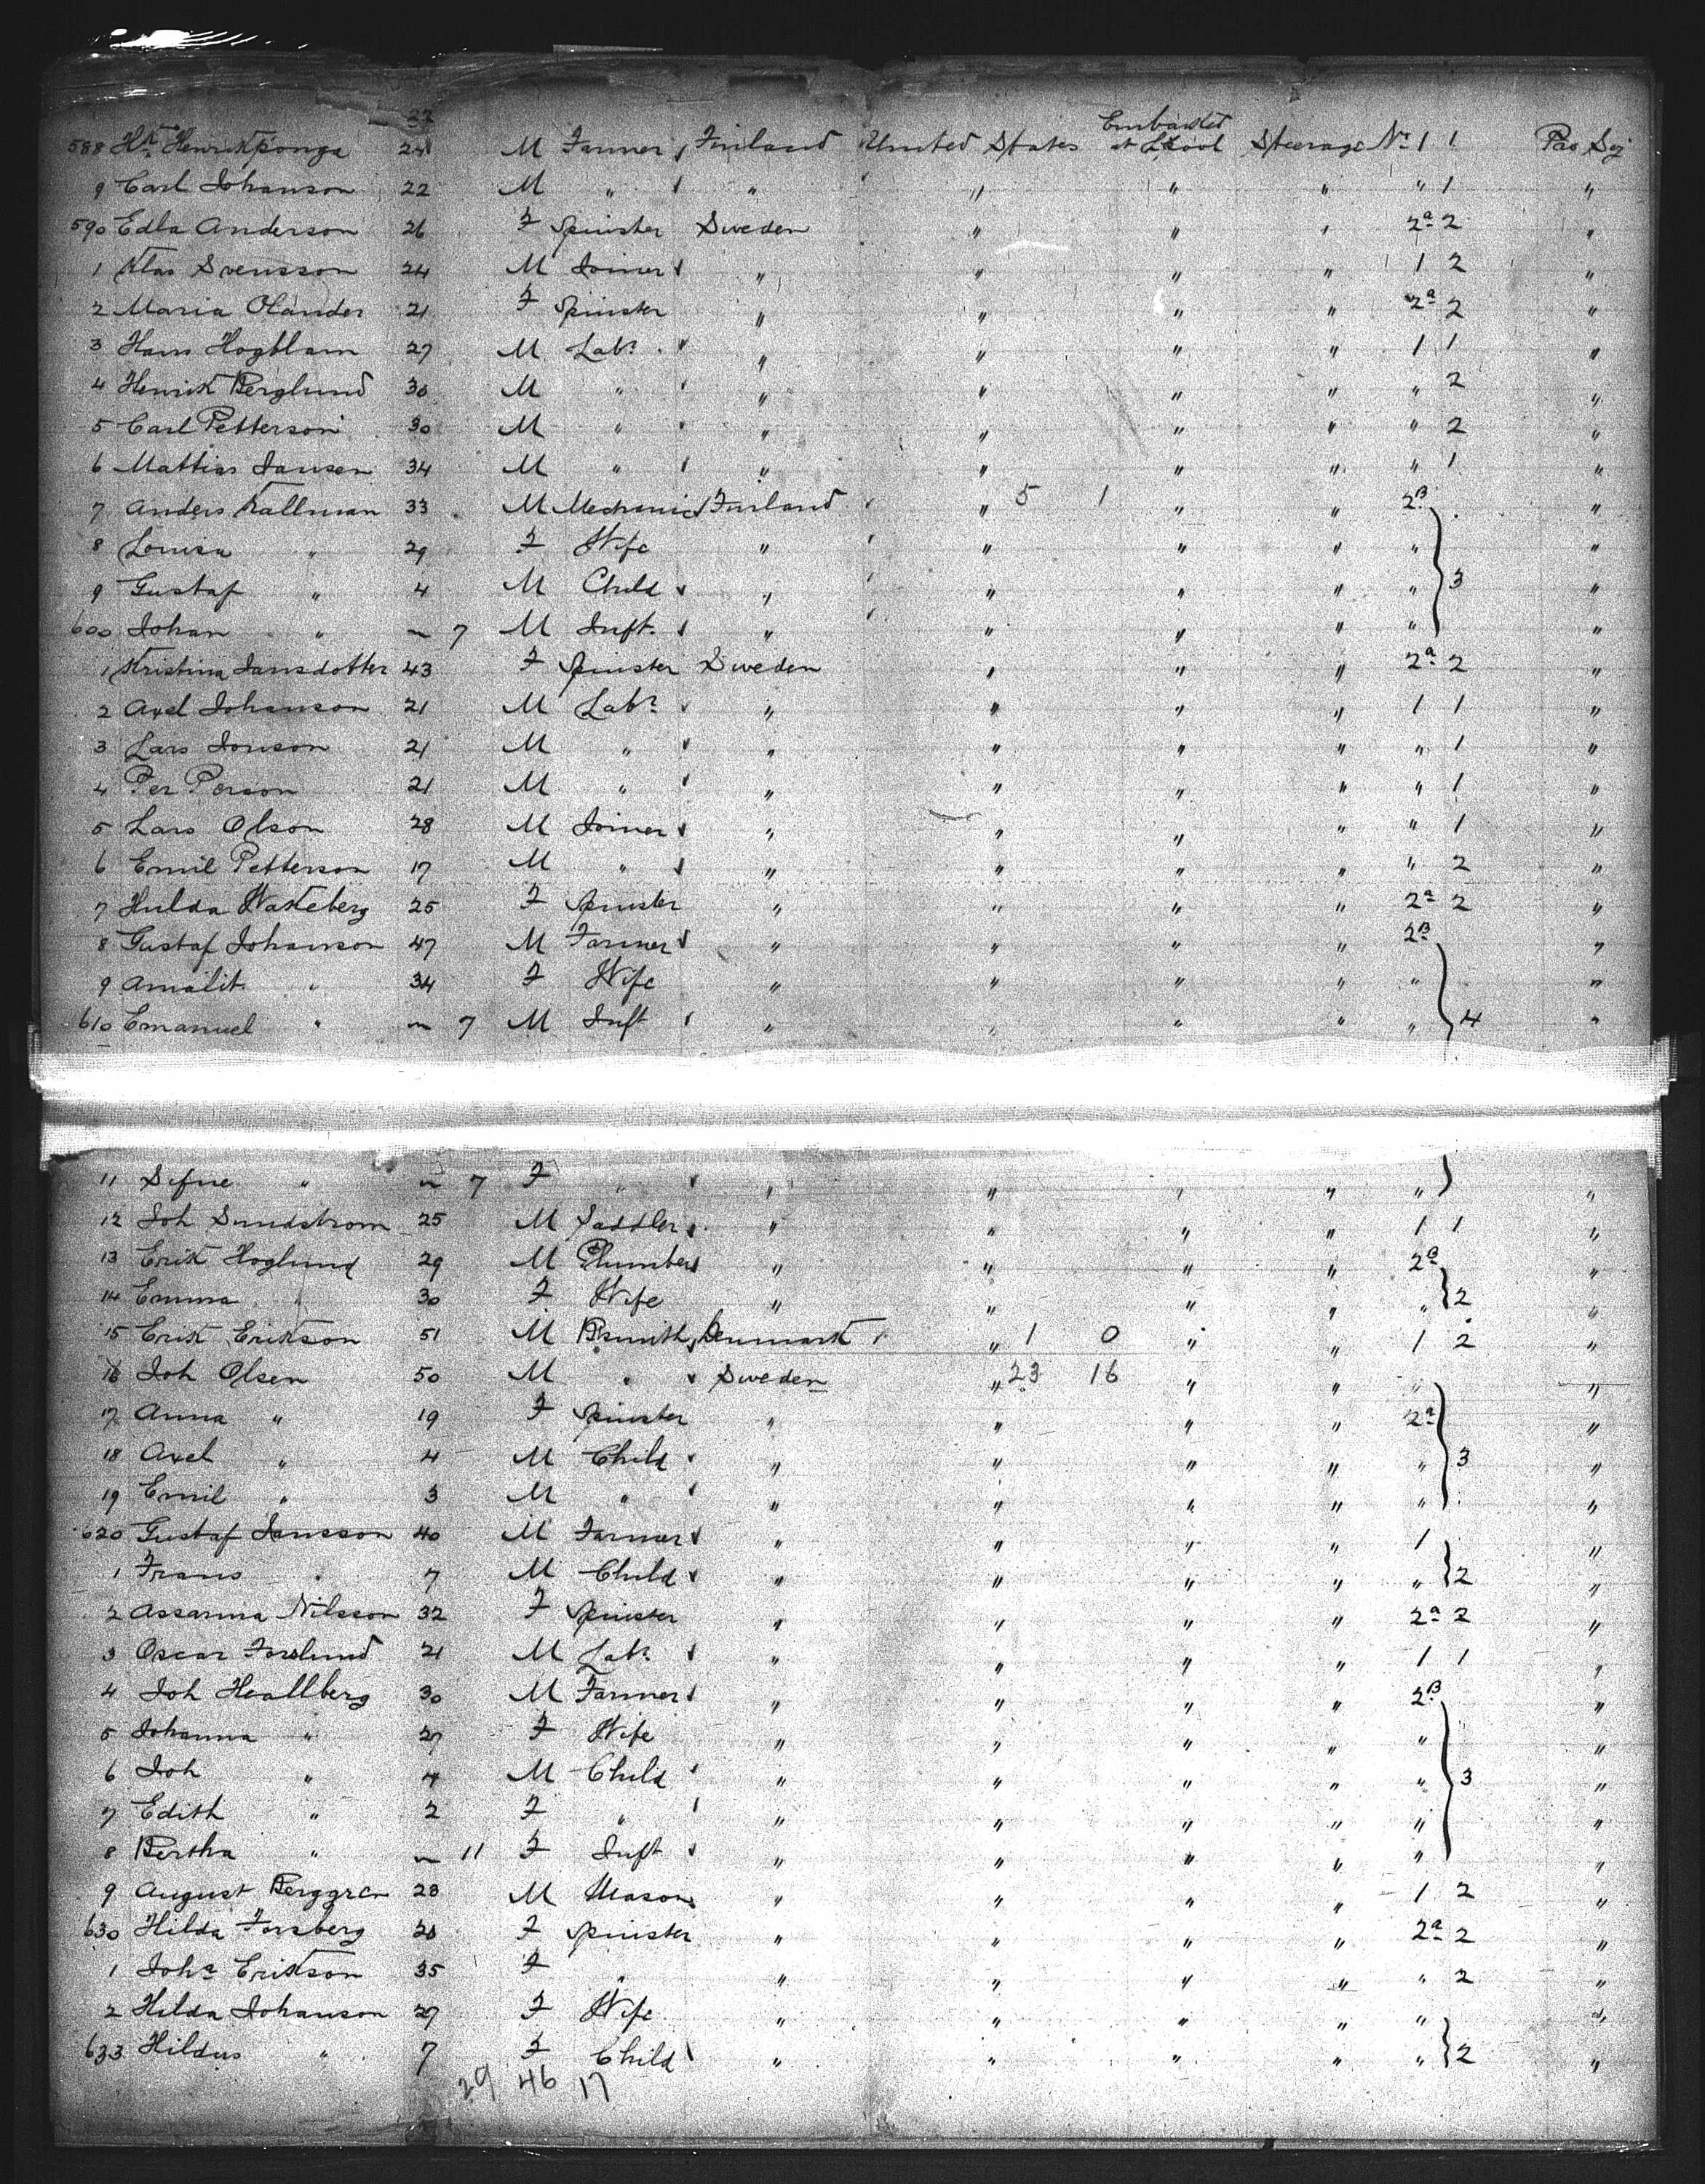 22
Embarked
588 Hk Henrikponga 24 M Farmer Finland United States at L'pool Steerage No 1 1 Pro Soj
9 Carl Johanson 22 M " " " " " " 1 "
590 Edla Anderson 26 F Spinster Sweden " " " 2a 2 "
1 Klas Svensson 24 M Joiner " " " " 1 2 "
2 Maria Olander 21 F Spinster " " " " 2a 2 "
3 Hans Hogblam 27 M Labr " " " " 1 1 "
4 Henrik Berglund 30 M " " " " " " 2 "
5 Carl Petterson 30 M " " " " " " 2 "
6 Mattias Jansen 34 M " " " " " " 1 "
7 Anders Kallman 33 M Mechanic Finland " 5 1 " " 2B "
8 Louisa " 29 F Wife " " " " " "
9 Gustaf " 4 M Child " " " " " 3 "
600 Johan " ~ 7 M Inft. " " " " " "
1 Kristina Jansdotter 43 F Spinster Sweden " " " 2a 2 "
2 Axel Johanson 21 M Labr " " " " 1 1 "
3 Lars Jonson 21 M " " " " " " 1 "
4 Per Person 21 M " " " " " " 1 "
5 Lars Olson 28 M Joiner " " " " " 1 "
6 Emil Petterson 17 M " " " " " " 2 "
7 Hulda Wakeberg 25 F Spinster " " " " 2a 2 "
8 Gustaf Johanson 47 M Farmer " " " " 2B "
9 Amalit " 34 F Wife " " " " " "
610 Emanuel " ~ 7 M Inft " " " " " 4 "
11 " ~ 7 F " " " " " " "
12 Joh Sundstrom 25 M Saddler " " " " 1 1 "
13 Erik Hoglund 29 M Plumber " " " " 2B "
14 Emma " 30 F Wife " " " " " 2 "
15 Erik Erikson 51 M Bsmith Denmark " 1 0 " " 1 2 "
16 Joh Olsen 50 M " Sweden " 23 16 " " " "
17 Anna " 19 F Spinster " " " " 2a "
18 Axel " 4 M Child " " " " " 3 "
19 Emil " 3 M " " " " " " "
620 Gustaf Jansson 40 M Farmer " " " " 1 "
1 Frans " 7 M Child " " " " " 2 "
2 Assarina Nilsson 32 F Spinster " " " " 2a 2 "
3 Oscar Forslund 21 M Labr " " " " 1 1 "
4 Joh Heallberg 30 M Farmer " " " " 2B "
5 Johanna " 27 F Wife " " " " " "
6 Joh " 4 M Child " " " " " 3 "
7 Edith " 2 F " " " " " " "
8 Bertha " ~ 11 F Inft " " " " " "
9 August Berggren 23 M Mason " " " " 1 2 "
630 Hilda Forsberg 20 F Spinster " " " " 2a 2 "
1 Joha Erikson 35 F " " " " " " 2 "
2 Hilda Johanson 27 F Wife " " " " " "
633 Hildus " 7 F Child " " " " " 2 "
29 46 17